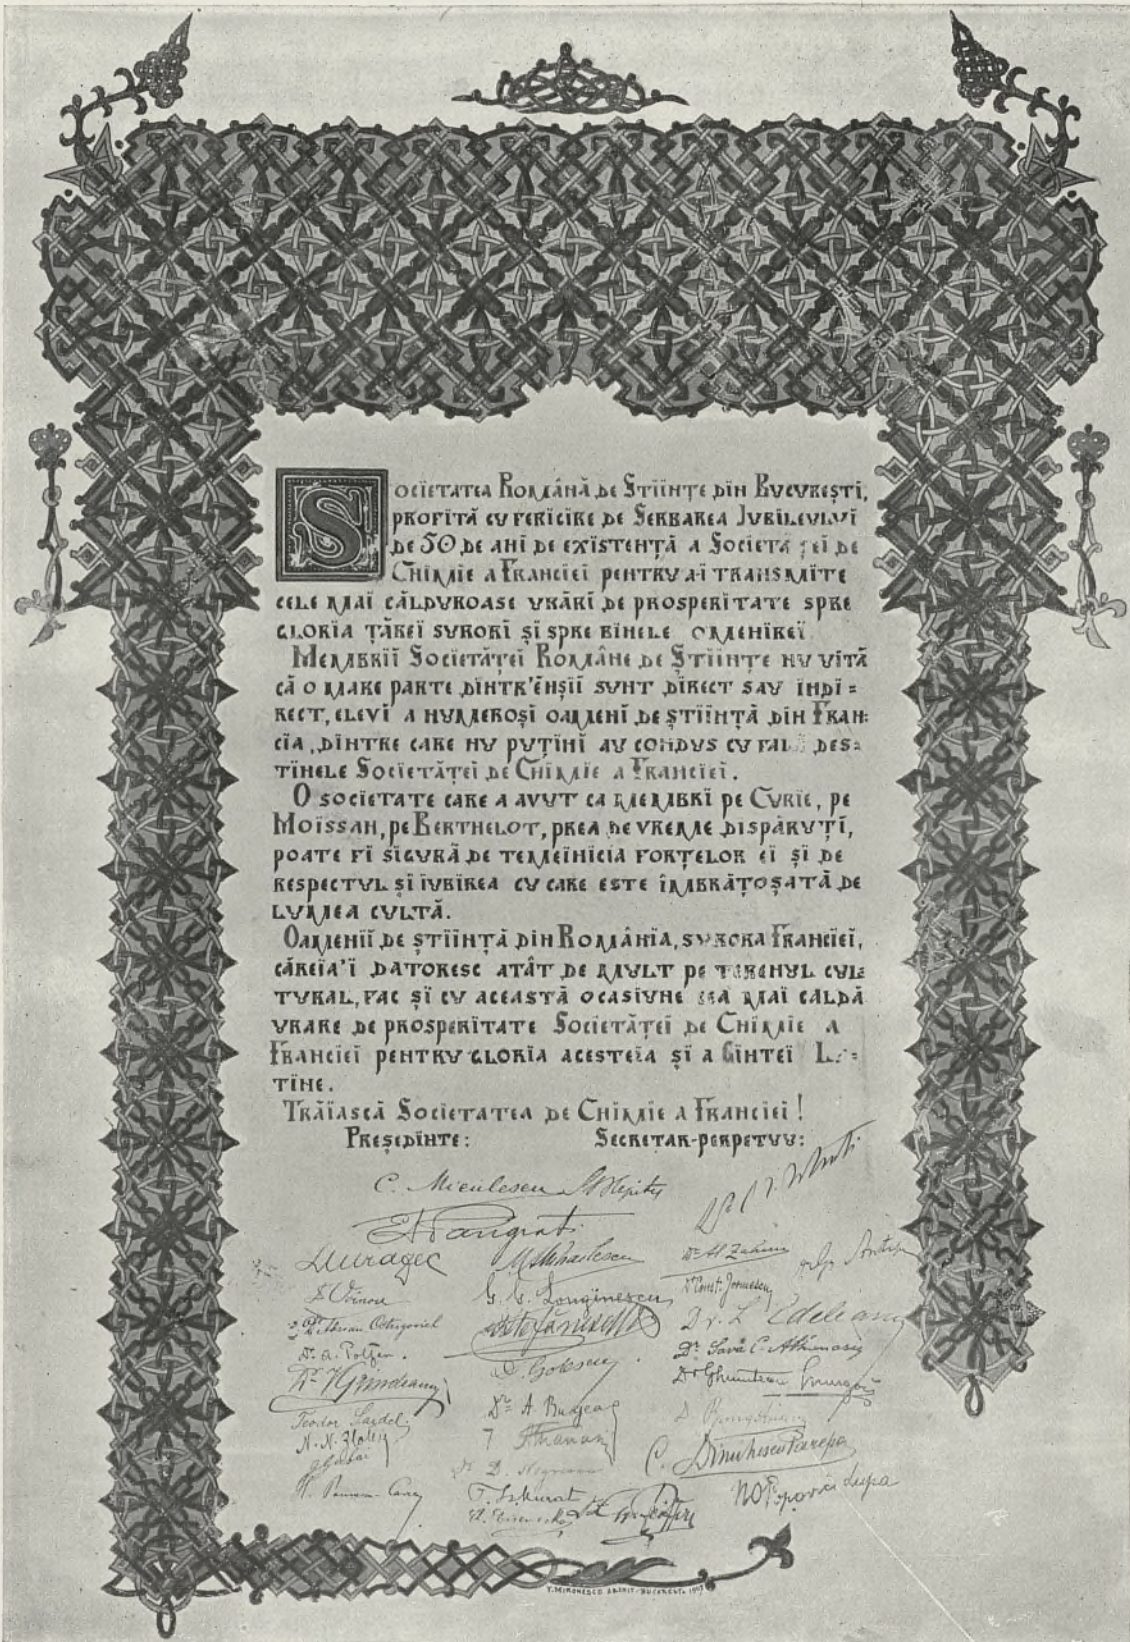 Societatea Română de Stiințe din București,
profită cu fericire de Serbarea Jubileului
de 50 de ani de existență a Societăței de
Chimie a Franciei pentru a-i transmite
cele mai călduroase urări de prosperitate spre
gloria țărei surori și spre binele omenirei
Membrii Societăței Române de Științe nu uită
că o mare parte dintr'ënșii sunt direct sau indi=
rect, elevi a numeroși oameni de știință din Fran=
cia, dintre care nu puțini au condus cu fală des=
tinele Societăței de Chimie a Franciei.
O societate care a avut ca membri pe Curie, pe
Moissan, pe Berthelot, prea de vreme dispăruți,
poate fi sigură de temeinicia forțelor ei și de
respectul și iubirea cu care este îmbrățoșată de
lumea cultă.
Oamenii de știință din România, surora Franciei,
căreia'i datoresc atât de mult pe terenul cul=
tural, fac și cu această ocasiune cea mai caldă
urare de prosperitate Societăței de Chimie a
Franciei pentru gloria acesteia și a Gintei La=
tine.
Trăiască Societatea de Chimie a Franciei!
Președinte: Secretar-perpetuu:
C. Miculescu St. Hepites
Pangrati
Muragec M. Mihailescu Dr. Al. Zaharia Antipa
G. G. Longinescu Dr. Const. Jormescu
Dr. Adrian Ostrogovich Dr. L. Edeleanu
Dr. A. Poltzer. C. Golescu Dr. Sava C. Athanasiu
Dr. Grindeanu Dr. A. Babeș
Teodor Saidel
N. N. C. Dinulescu Parepa
T. Sz. Murat N. O. Popovici Lupa
T. Mironescu Arhit. Bucuresti 1907